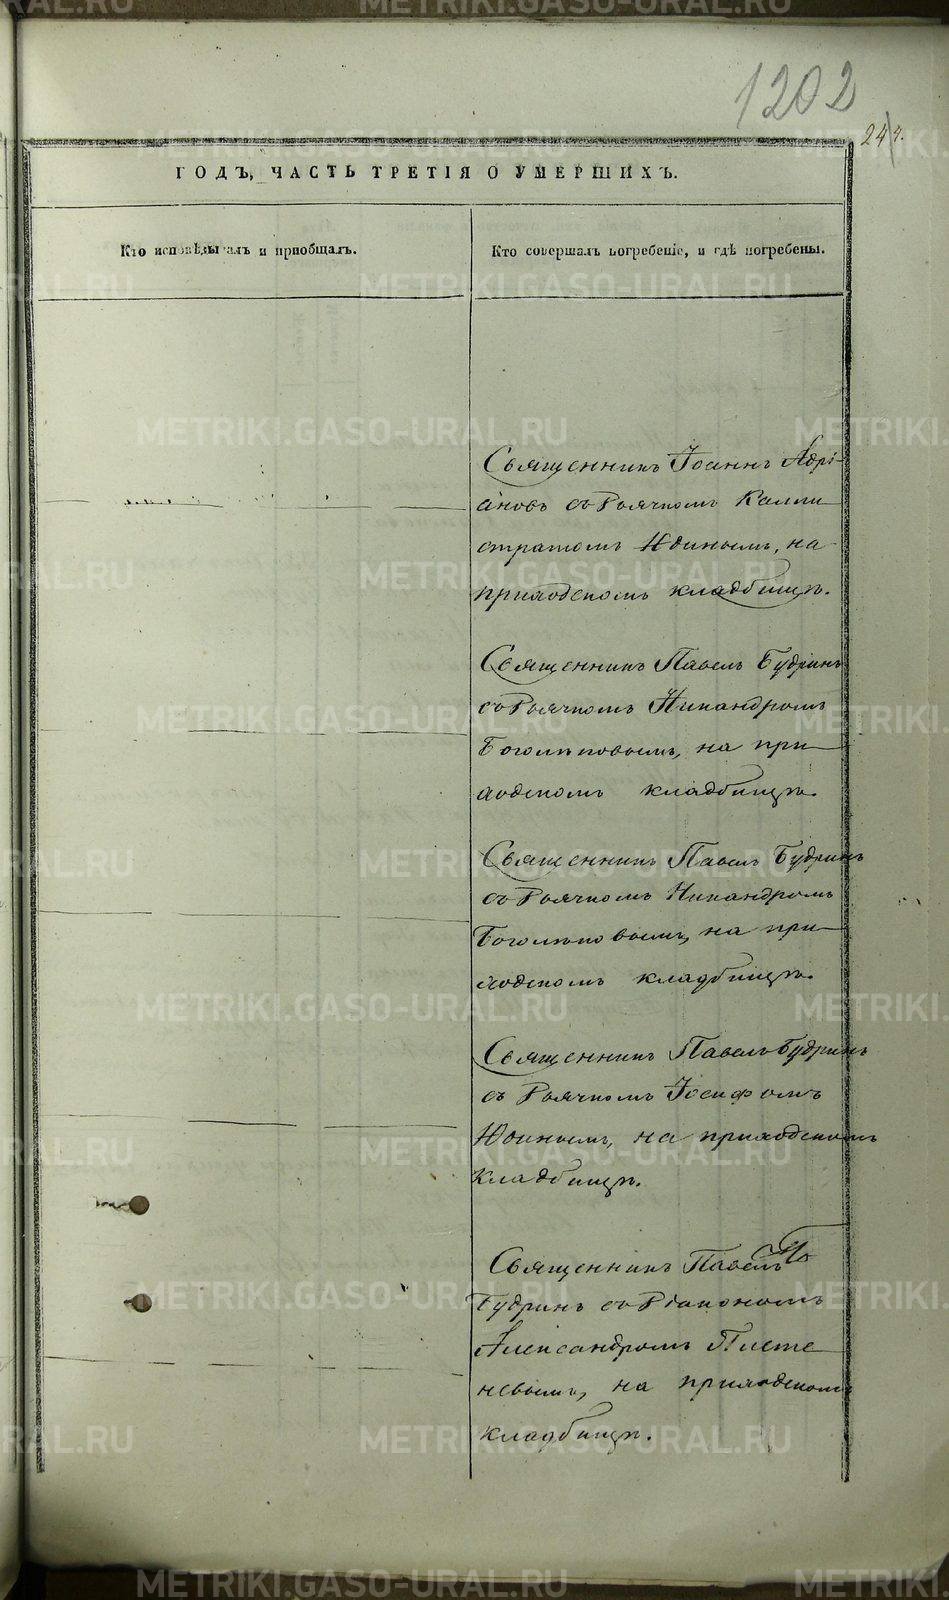 1202
244.
ГОДЪ, ЧАСТЬ ТРЕТІЯ О УМЕРШИХЪ.
Кто исповѣдывалъ и пріобщалъ.
Кто совершалъ погребеніе, и гдѣ погребены.
Священникъ Іоаннъ Адрі-
ановъ съ Дьячкомъ Калли
стратомъ Юдинымъ, на
приходскомъ кладбищѣ.
Священникъ Павелъ Будринъ
съ Дьячкомъ Никандромъ
Боголѣповымъ, на при
ходскомъ кладбищѣ.
Священникъ Павелъ Будринъ
съ Дьячкомъ Никандромъ
Боголѣповымъ, на при
ходскомъ кладбищѣ.
Священникъ Павелъ Будринъ
съ Дьячкомъ Іосифомъ
Юдинымъ, на приходскомъ
кладбищѣ.
Священникъ Павелъ
Будринъ съ Діакономъ
Александромъ Плете
невымъ, на приходскомъ
кладбищѣ.
METRIKI.GASO-URAL.RU